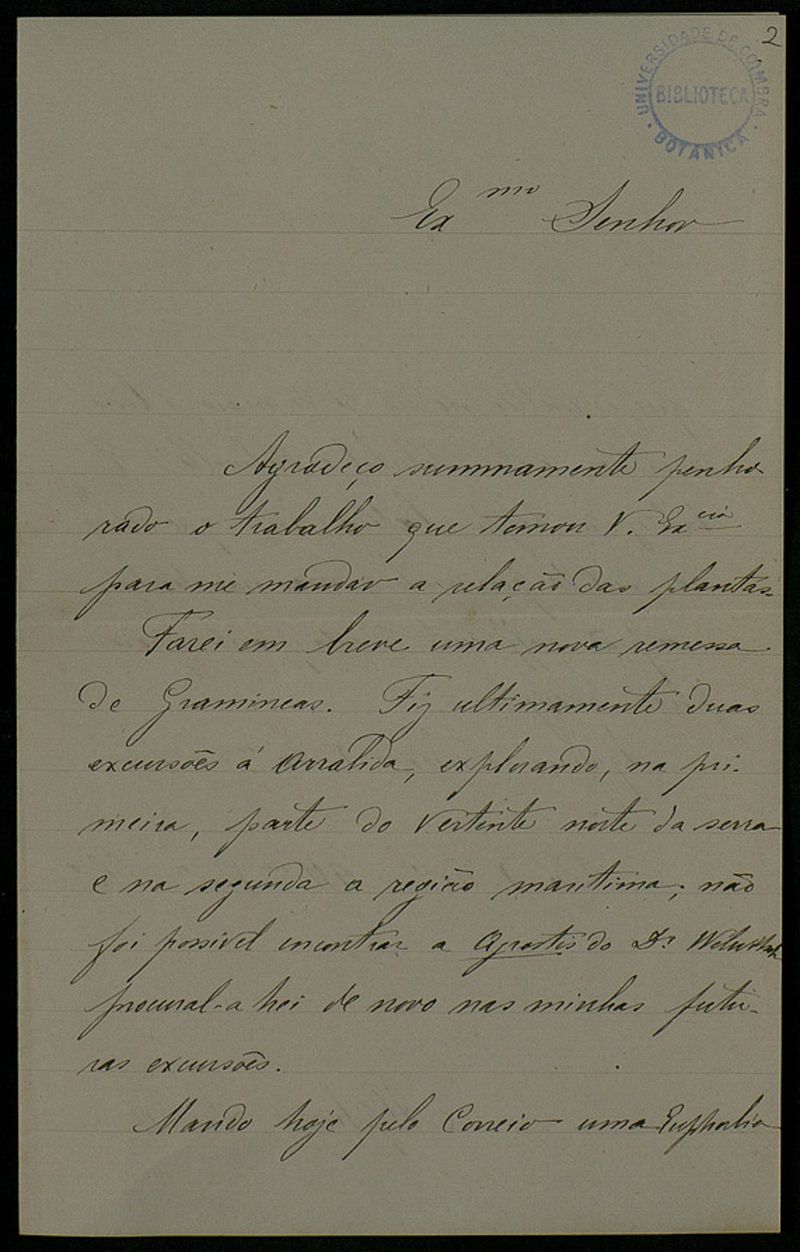 2
UNIVERSIDADE DE COIMBRA
BIBLIOTECA
BOTANICA
Ex mo Senhor
Agradeço summamente penho
rado o trabalho que tomou V. Ex cia
para me mandar a relação das plantas.
Farei em breve uma nova remessa
de Gramineas. Fiz ultimamente duas
excursões á Arrabida, explorando, na pri-
meira, parte do vertente norte da serra
e na segunda a região maritima; não
foi possivel encontrar a Agrostis do Dr.
procural-a hei de novo nas minhas futu-
ras excursões.
Mando hoje pelo Correio uma Euphorbia